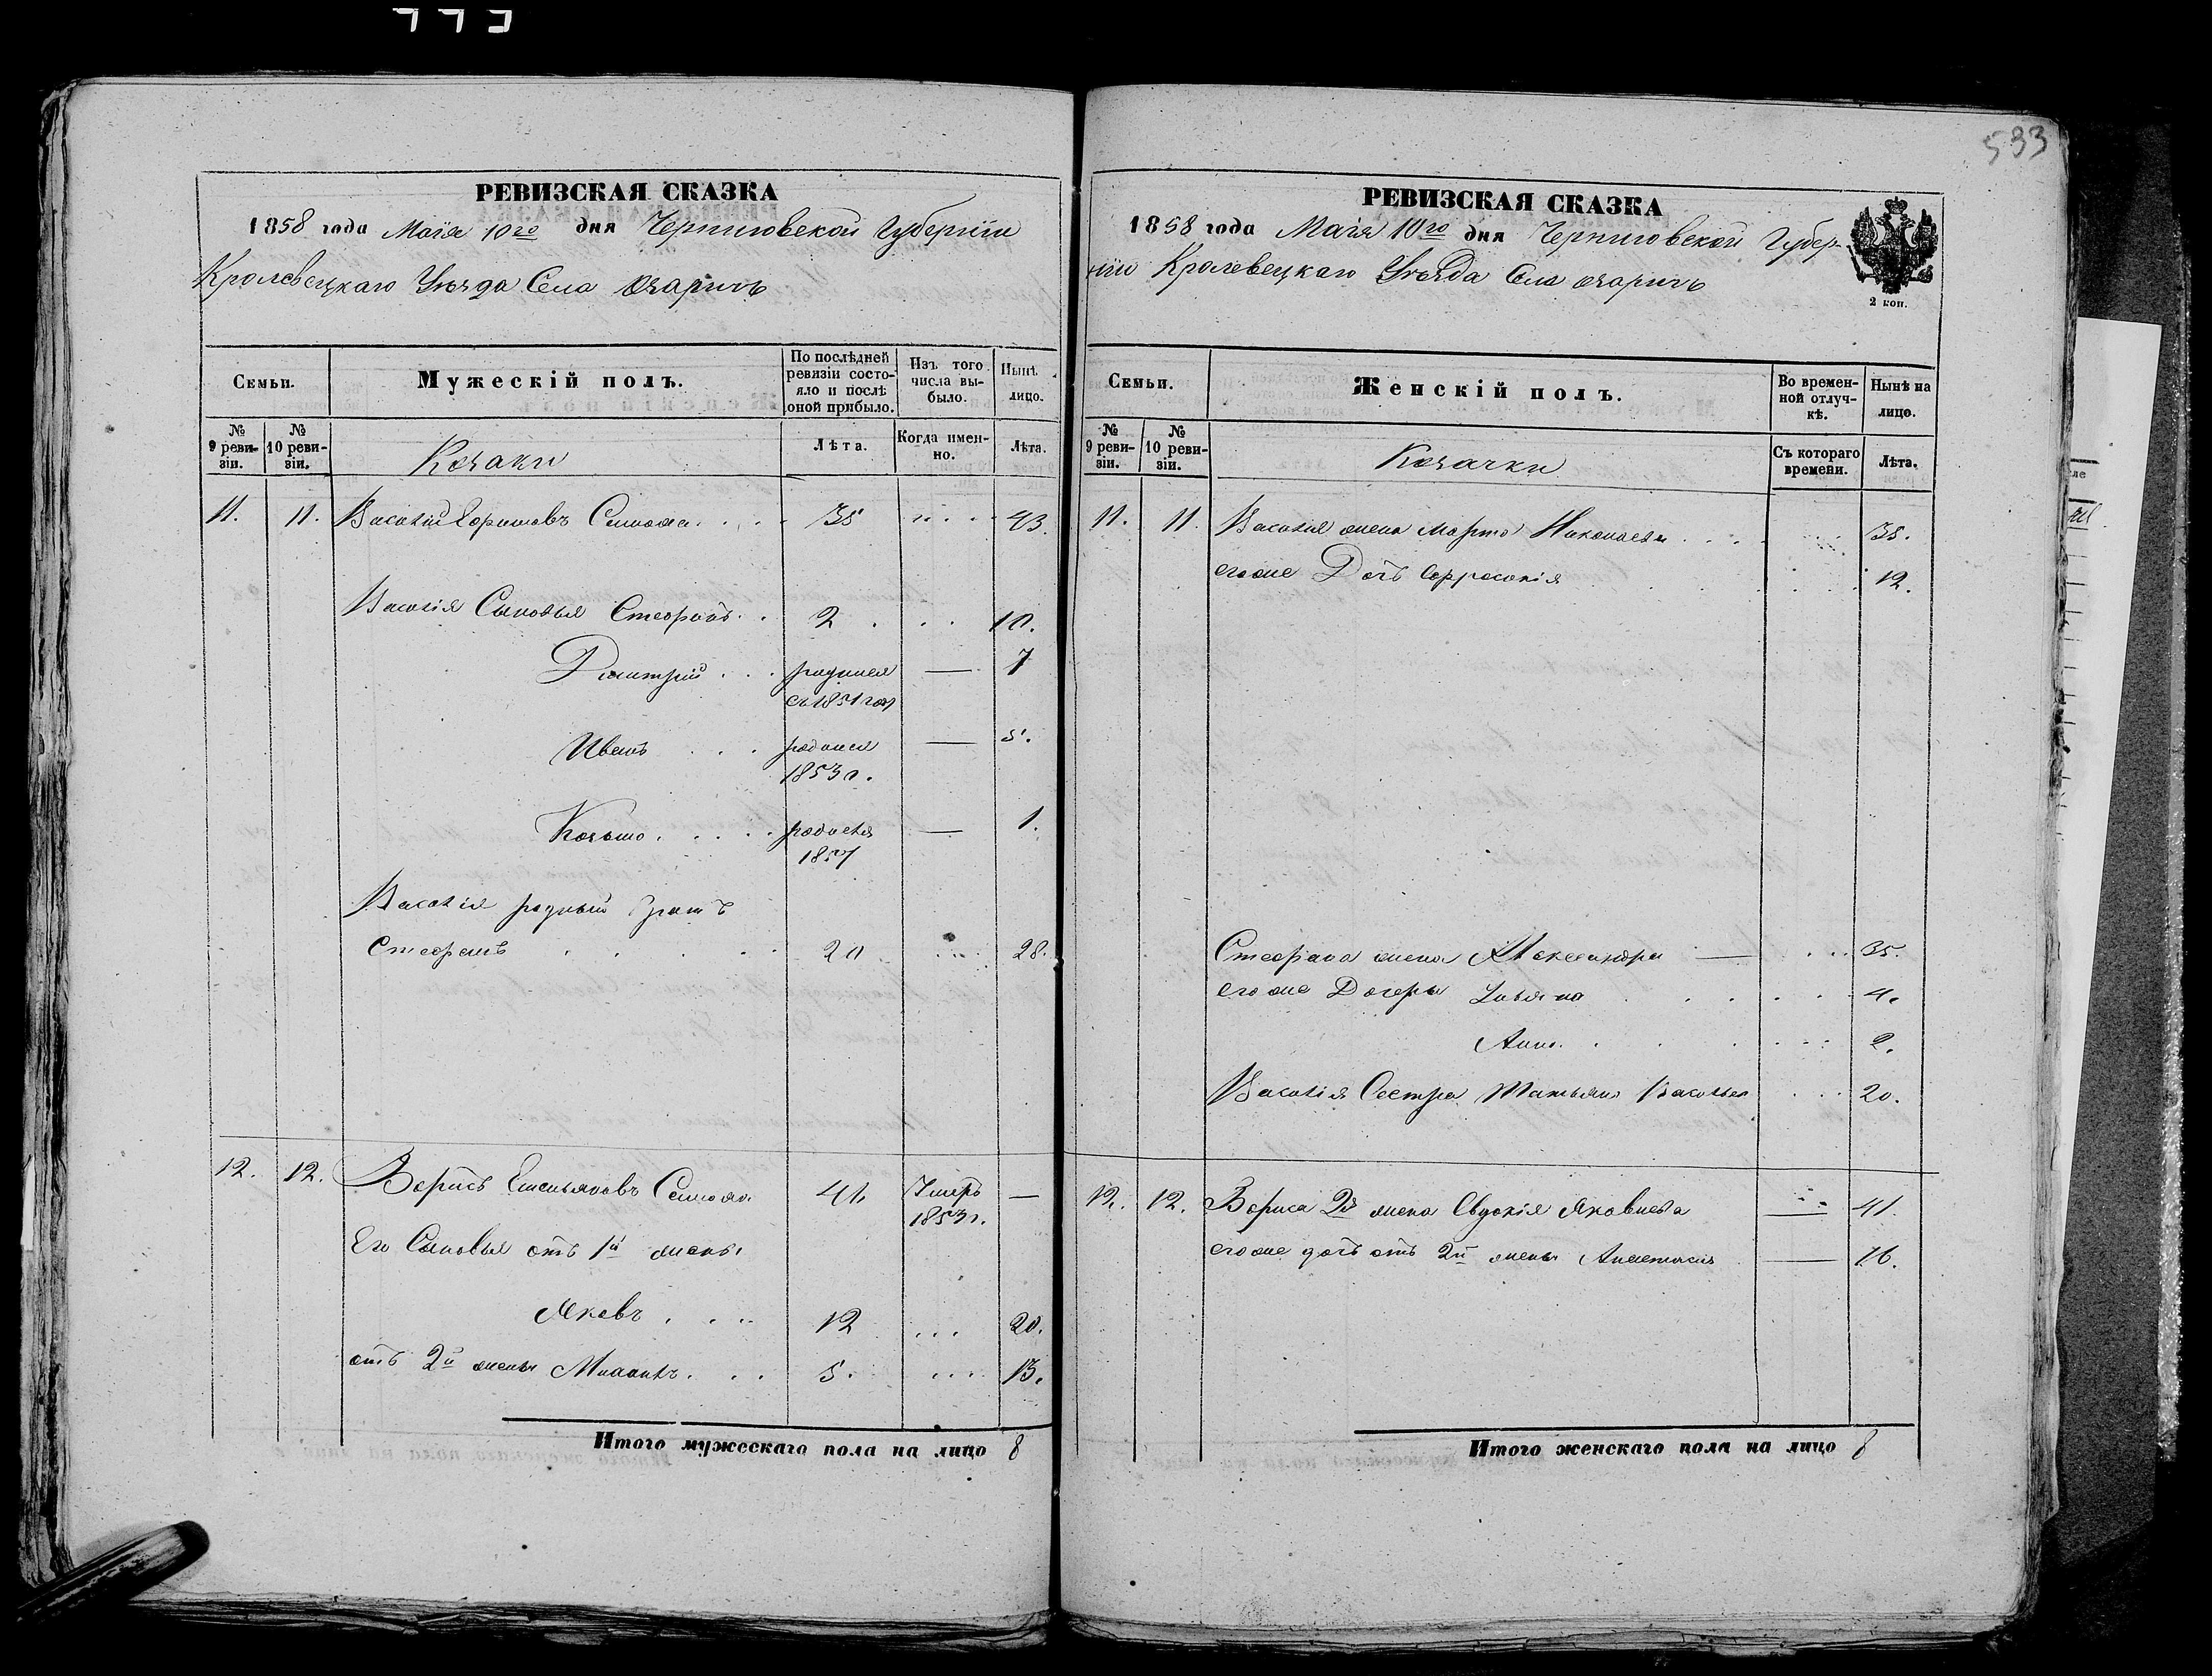 533
РЕВИЗСКАЯ СКАЗКА
1858 года Маія 10го дня Черниговской Губерніи
Кролевецкаго Уѣзда Села Озаричъ
Семьи.
Мужескій полъ.
По послѣдней ревизіи состояло и послѣ оной прибыло.
Изъ того числа выбыло.
Нынѣ лицо.
№ 9 ревизіи.
№ 10 ревизіи.
Козаки
Лѣта.
Когда именно.
Лѣта.
11. 11. Василій 35 43
Василія Сыновья Стефанъ 2 10.
Дмитрій родился съ 1851 года — 7
Иванъ родился 1853 г. — 5.
Козьма родился 1857 — 1.
Василія родный братъ
Стефанъ 20 28.
12. 12. Борисъ Емельяновъ 41. Умеръ 1853 г. —
Его Сыновья отъ 1й жены
Яковъ 12 20.
отъ 2й жены 5. 13.
Итого мужескаго пола на лицо 8
РЕВИЗСКАЯ СКАЗКА
1858 года Маія 10го дня Черниговской Губер-
ніи Кролевецкаго Уѣзда Села Озаричъ
2 коп.
Семьи.
Женскій полъ.
Во временной отлучкѣ.
Нынѣ на лицо.
№ 9 ревизіи.
№ 10 ревизіи.
Козачки
Съ котораго времени.
Лѣта.
11. 11. Василія жена Марфа Николаева 35.
егоже Дочь Ефросинія 12.
Стефана жена Александра — 35.
егоже Дочери Ульяна 4.
Анна 2.
Василія Сестра Татьяна Васильева 20.
12. 12. Бориса 2я жена Евдокія Яковлева — 41.
егоже дочь отъ 2й жены Анастасія — 16.
Итого женскаго пола на лицо 8